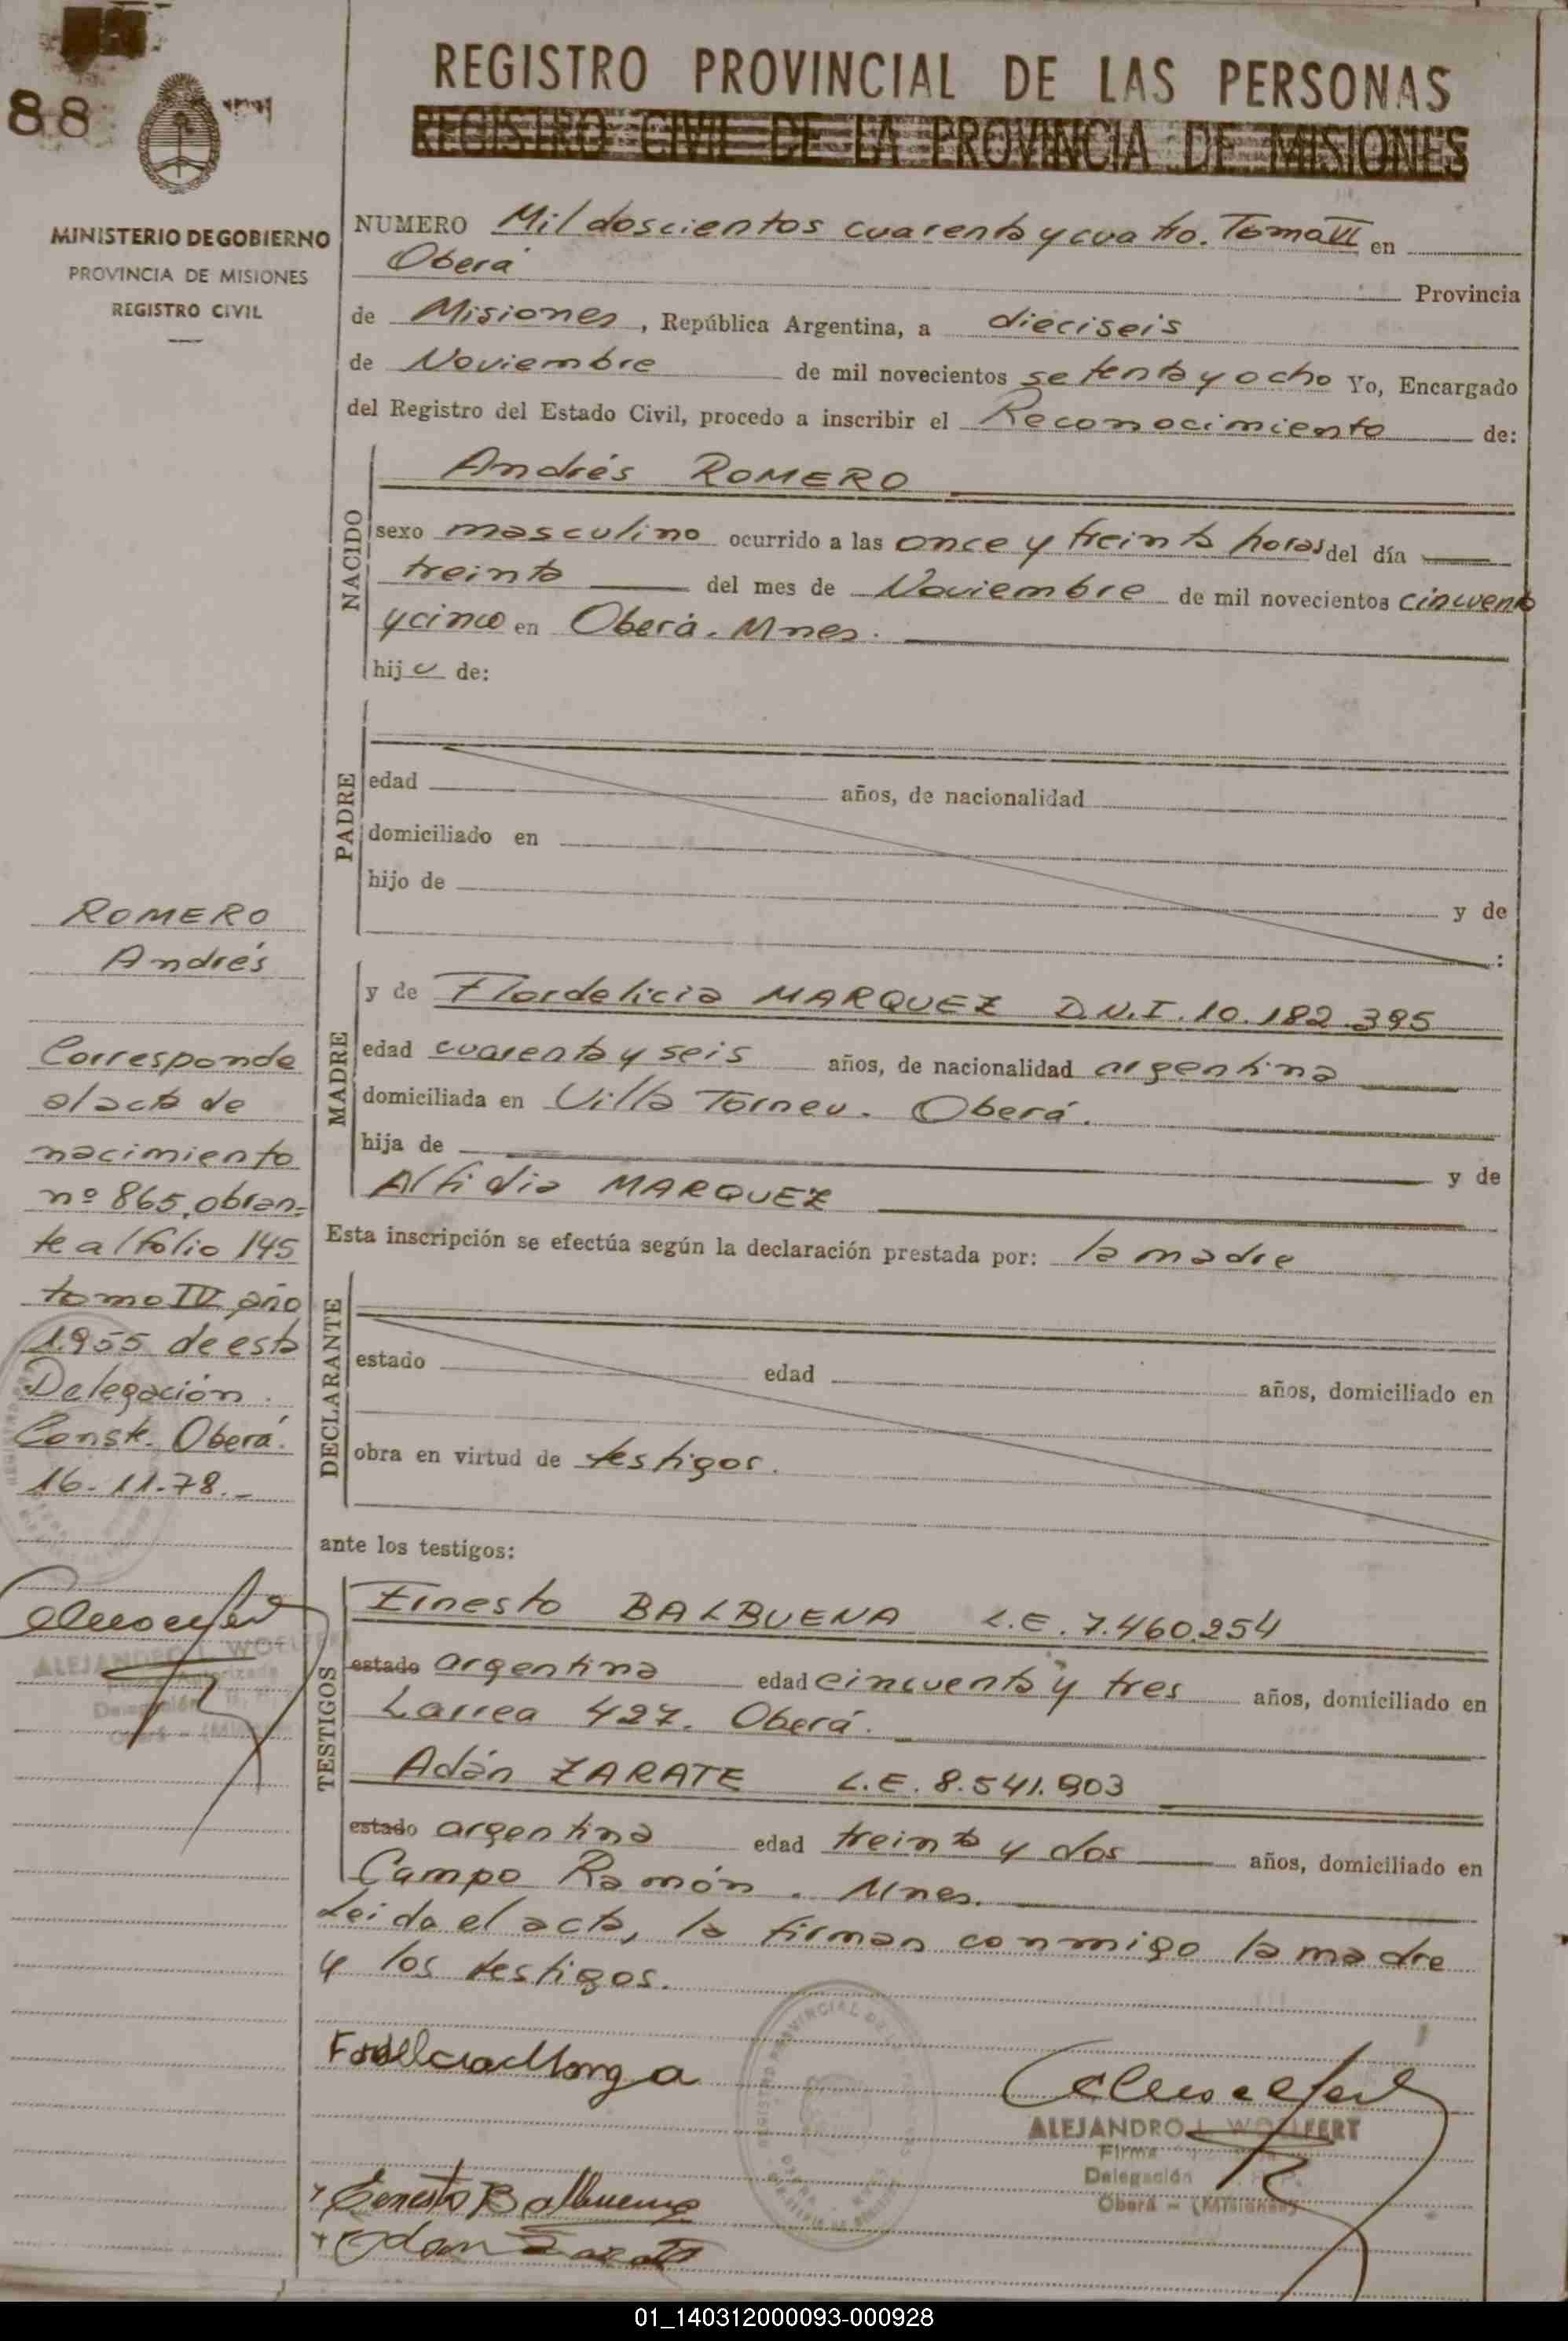 88
REGISTRO PROVINCIAL DE LAS PERSONAS
REGISTRO CIVIL DE LA PROVINCIA DE MISIONES
MINISTERIO DE GOBIERNO
PROVINCIA DE MISIONES
REGISTRO CIVIL
NUMERO Mil doscientos cuarenta y cuatro. Tomo VI en
Oberá Provincia
de Misiones, República Argentina, a dieciseis
de Noviembre de mil novecientos setenta y ocho Yo, Encargado
del Registro del Estado Civil, procedo a inscribir el Reconocimiento de:
NACIDO
Andrés ROMERO
sexo masculino ocurrido a las once y treinta horas del día
treinta del mes de Noviembre de mil novecientos cincuenta
y cinco en Oberá. Mnes.
hijo de:
PADRE
edad años, de nacionalidad
domiciliado en
hijo de y de
:
MADRE
y de Flordelicia MARQUEZ D.N.I. 10.182.395
edad cuarenta y seis años, de nacionalidad argentina
domiciliada en Villa Torneu. Oberá.
hija de y de
Alfidia MARQUEZ
Esta inscripción se efectúa según la declaración prestada por: la madre
DECLARANTE
estado edad años, domiciliado en
obra en virtud de testigos.
ante los testigos:
TESTIGOS
Ernesto BALBUENA L.E. 7.460.254
estado argentina edad cincuenta y tres años, domiciliado en
Larrea 427. Oberá.
Adán ZARATE L.E. 8.541.903
estado argentina edad treinta y dos años, domiciliado en
Campo Ramón. Mnes.
Leida el acta, la firman conmigo la madre
y los testigos.
ROMERO
Andrés
Corresponde
al acta de
nacimiento
nº 865, obran=
te al folio 145
tomo IV año
1.955 de esta
Delegación.
Conste. Oberá.
16-11-78.-
ALEJANDRO L. WOELFERT
Delegación
Ernesto Balbuena
ALEJANDRO L. WOELFERT
Firma
Delegación
Oberá - (Misiones)
01_140312000093-000928